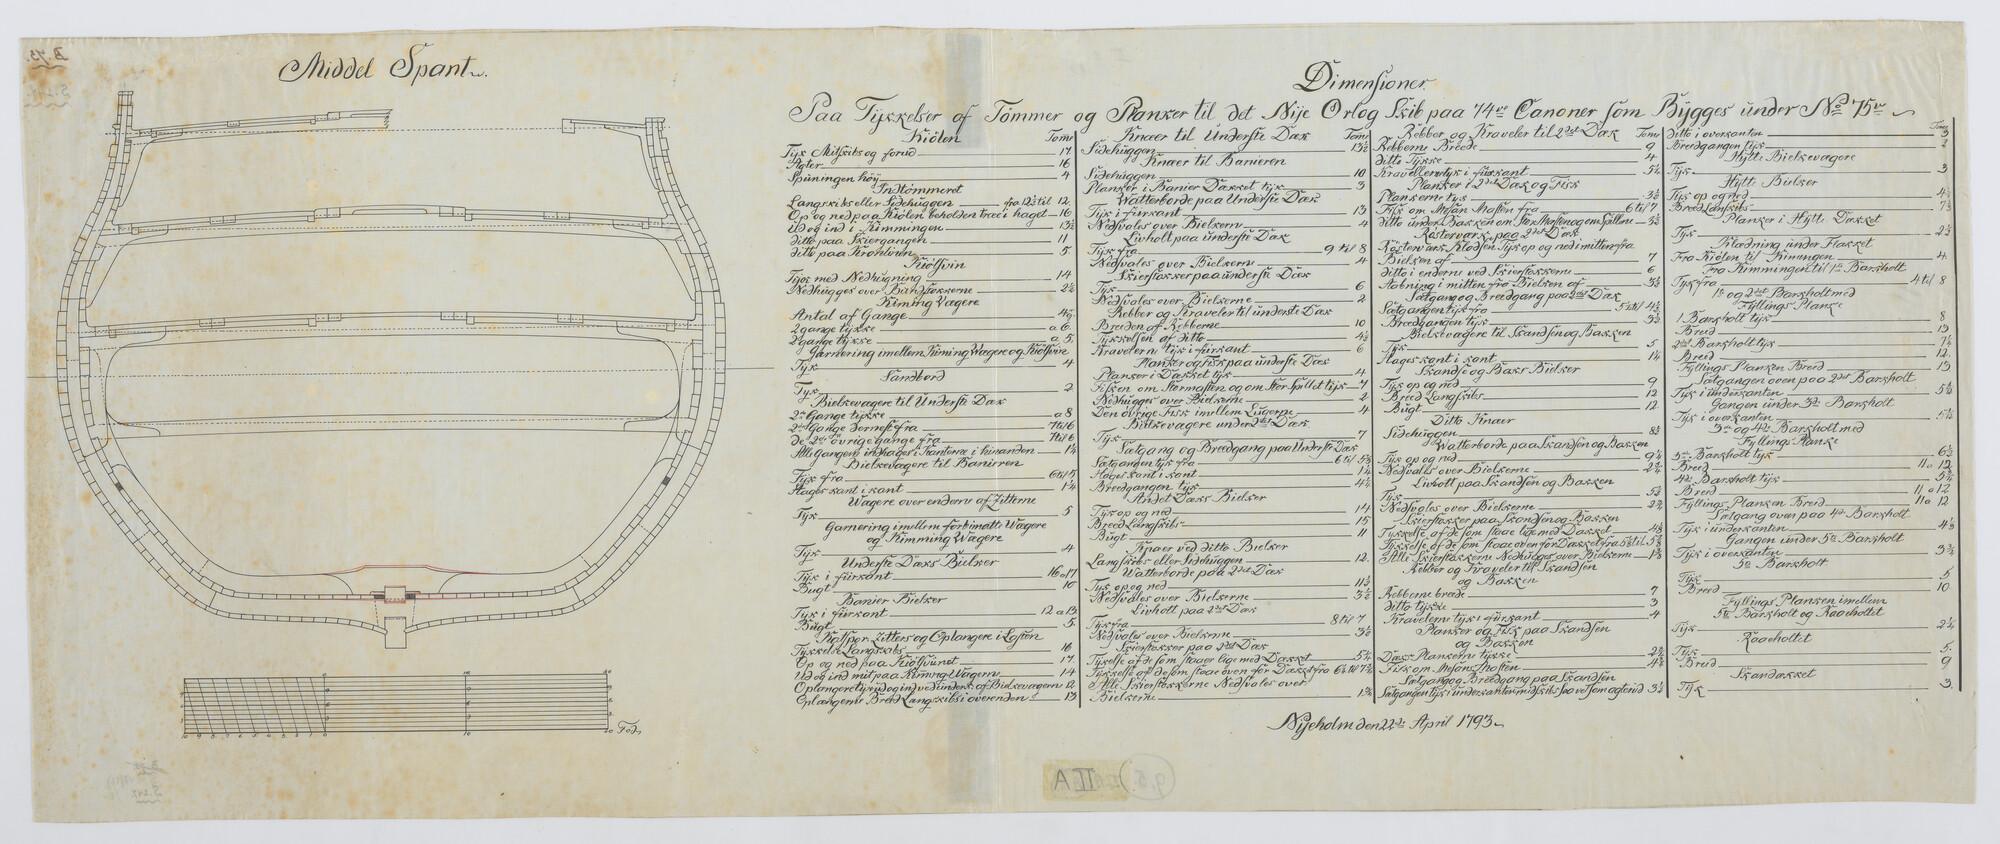 Middel Spant
Dimensioner
Paa Tÿkkelser af Tömmer og Planker til det Nÿe Orlog Skib paa 74ve Canoner som Bÿgges under No 75ve
Kiölen Tom
Tÿk Mitskibs og forud 17
Agter 16
Spuningen höÿ 4
Indtömmeret
Langskibs eller Sidehuggen fra 12½ til 12
Op og ned paa Kiölen beholden træe i haget 16
Ud og ind i Kimmingen 13½
ditto paa Skiergangen 11
ditto paa Kronlinien 5
Kiölsvin
Tÿk med Nedhugning 14
Nedhugges over Bundstokkerne 2½
Kiming Vagere
Antal af Gange
2 gange tÿkke a 6
2 gange tÿkke a 5
Garnering imellem Kiming Vagere og Kiölsvin
Tÿk 4
Sandbord
Tÿk 2
Bielkevagere til Underste Dæk
2de Gange tÿkke a 8
2de Gange dernest fra 7 til 6
De 2de övrige gange fra 7 til 6
Alle Gangene indhages i Kanterne i hinanden 1¼
Bielkevagere til Banieren
Tÿk fra 6 til 5
Hages kant i kant 1¼
Vagere over enderne af Zitterne
Tÿk 5
Garnering imellem forbemelte Vagere
og Kimming Vagere
Tÿk 4
Underste Dæks Bielker
Tÿk i fiirkant 16 a 17
Bugt 10
Banier Bielker
Tÿk i fiirkant 12 a 13
Bugt 5
Katspor Zitters og Oplangere i Lasten
Tÿkkelse Langskibs 16
Op og ned paa Kiölsvinet 17
Ud og ind mit paa Kimings Vagern 14
Oplangere tÿk ud og ind ved underk: af Bielkevagern 12
Oplangerne Breed Langskibs i overenden 13
Knæer til Underste Dæk Tom
Sidehuggen 13½
Knæer til Banieren
Sidehuggen 10
Planker i Banier Dækket tÿk 3
Watterborde paa Underste Dæk
Tÿk i fiirkant 13
Nedsvales over Bielkern 4
Livholt paa underste Dæk
Tÿk fra 9 til 8
Nedsvales over Bielkerne 4
Skierstokker paa underste Dæk
Tÿk 6
Nedsvales over Bielkerne 2
Rebber og Kraveler til underste Dæk
Breeden af Rebberne 10
Tÿkkelsen af ditto 4½
Kravelern tÿk i fiirkant 6
Planker og Fisk paa underste Dæk
Planker i Dækket tÿk 4
Fisken om Stormasten og om Stor Spillet tÿk 7
Nedhugges over Bielkerne 2
Den övrige Fisk imellem Lugerne 4
Bielkevagere under 2det Dæk
Tÿk 7
Sætgang og Breedgang paa Underste Dæk
Sætgangen tÿk fra
Hages kant i kant 1¼
Breedgangen tÿk 4½
Andet Dæks Bielker
Tÿk op og ned 14
Breed Langskibs 15
Bugt 11
Knæer ved ditto Bielker
Langskibs eller Sidehuggen 12
Watterborde paa 2det Dæk
Tÿk op og ned 11½
Nedsvales over Bielkerne 3½
Livholt paa 2det Dæk
Tÿk fra 8 til 7
Nedsvales over Bielkerne 3½
Skierstokker paa 2det Dæk
Tÿkelse af de som staaer lige med Dækket
Tÿkkelse af de som staae oven for Dækket fra
Alle Skierstokkerne Nedsvales over
Bielkerne
Rebber og Kraveler til 2det Dæk Tom
Rebberne Breede 9
ditto Tÿkke 4
Kravellern tÿk i fiirkant 5¼
Planker i 2det Dæk og Fisk
Plankerne tÿk 3½
Fisk om Mesan Masten fra 6 til 7
ditto under Bakken om Stor Masten og om Spillene
Rösterværk paa 2det Dæk
Rösterværk Klodsen Tÿk op og ned i mitten fra
Bielken af 7
ditto i enderne ved Skierstokkerne 6
Aabning i mitten fra Bielken af 3½
Sætgang og Breedgang paa 2det Dæk
Sætgangen tÿk fra 5 til 4½
Breedgangen tÿk 3½
Bielkevagere til Skandsen og Bakken
Tÿk 5
Hages kant i kant 1¼
Skandse og Baks Bielker
Tÿk op og ned 9
Breed Langskibs 12
Bugt 12
Ditto Knæer
Sidehuggen 8½
Watterborde paa Skandsen og Bakken
Tÿk op og ned 9½
Nedsvales over Bielkerne
Livholt paa Skandsen og Bakken
Tÿk
Nedsvales over Bielkerne
Skierstokker paa Skandsen og Bakken
Tÿkkelse af de som staae lige med Dækket
Tÿkkelse af de som staae oven for Dækket fra
Alle Skierstokkerne Nedhugges over Bielkern
Rebber og Kraveler til Skandsen
og Bakken
Rebberne brede 7
ditto tÿkke 3
Kravelern tÿk i fiirkant 4
Planker og Fisk paa Skandsen
og Bakken
Dæks Plankerne tÿkke
Fisk om Mesans Masten
Sætgang og Breedgang paa Skandsen
Sætgangen tÿk i underkanten midskibs saa vel som agterud 3½
Tom
Ditto i overkanten 3
Breedgangen tÿk 2
Hÿtte Bielkevagere
Tÿk 3
Hÿtte Bielker
Tÿk op og ned
Breed Langskibs
Planker i Hÿtte Dækket
Tÿk 2½
Klædning under Flakket
Fra Kiölen til Kimingen 4
Fra Kimmingen til 1te Barkholt
Tÿk fra 4 til 8
1te og 2det Barkholt med
Fÿllings Planke
1 Barkholt tÿk 8
Breed 13
2det Barkholt tÿk 7½
Breed 12
Fÿllings Planken Breed 13
Sætgangen oven paa 2det Barkholt
Tÿk i underkanten 5½
Gangen under 3de Barkholt
Tÿk i overkanten 5½
3de og 4de Barkholt med
Fÿllings Planke
3de Barkholt tÿk 6½
Breed 11 a 12
4de Barkholt tÿk
Breed 11 a 12
Fÿllings Planken Breed 11 a 12
Sætgang oven paa 4de Barkholt
Tÿk i underkanten 4½
Gangen under 5te Barkholt
Tÿk i overkanten 3½
5te Barkholt
Tÿk 5
Breed 10
Fÿllings Planken imellem
5te Barkholt og Raaeholtet
Tÿk 2½
Raaeholtet
Tÿk 5
Breed 9
Skandækket
Tÿk 3
Nÿeholm den 22de April 1793
10 9 8 7 6 5 4 3 2 1 0 10 20 Fod
II A